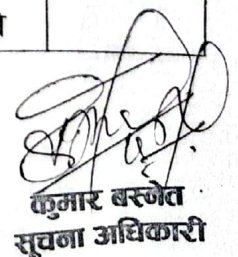 कुमार बस्नेत
सूचना अधिकारी